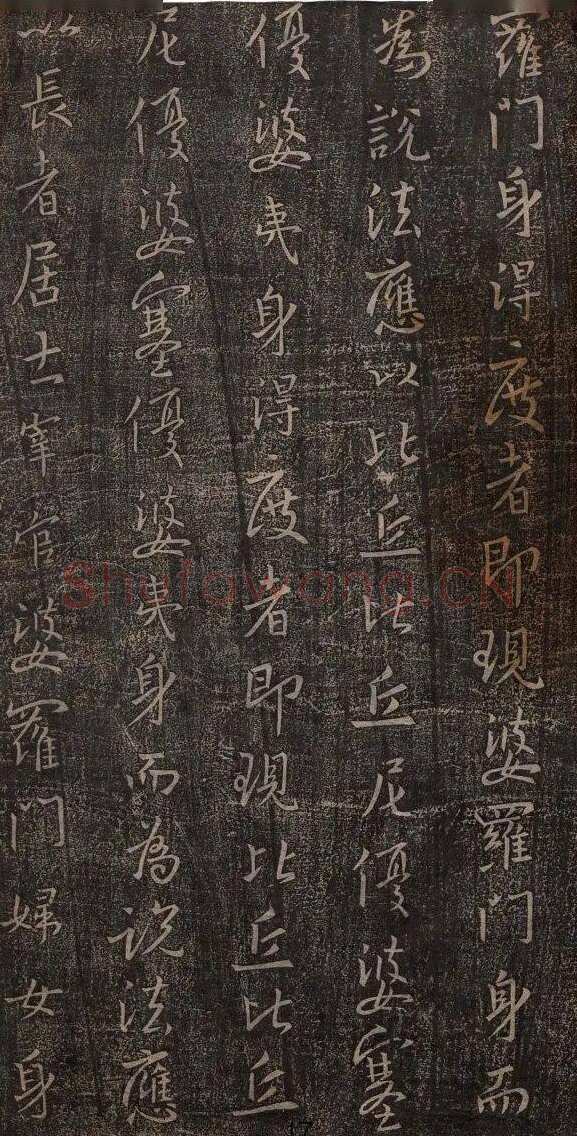 羅門身得度者即現婆羅門身而
為說法應以比丘比丘尼優婆塞
優婆夷身得度者即現比丘比丘
尼優婆塞優婆夷身而為說法應
以長者居士宰官婆羅門婦女身
Shufawang.CN
17